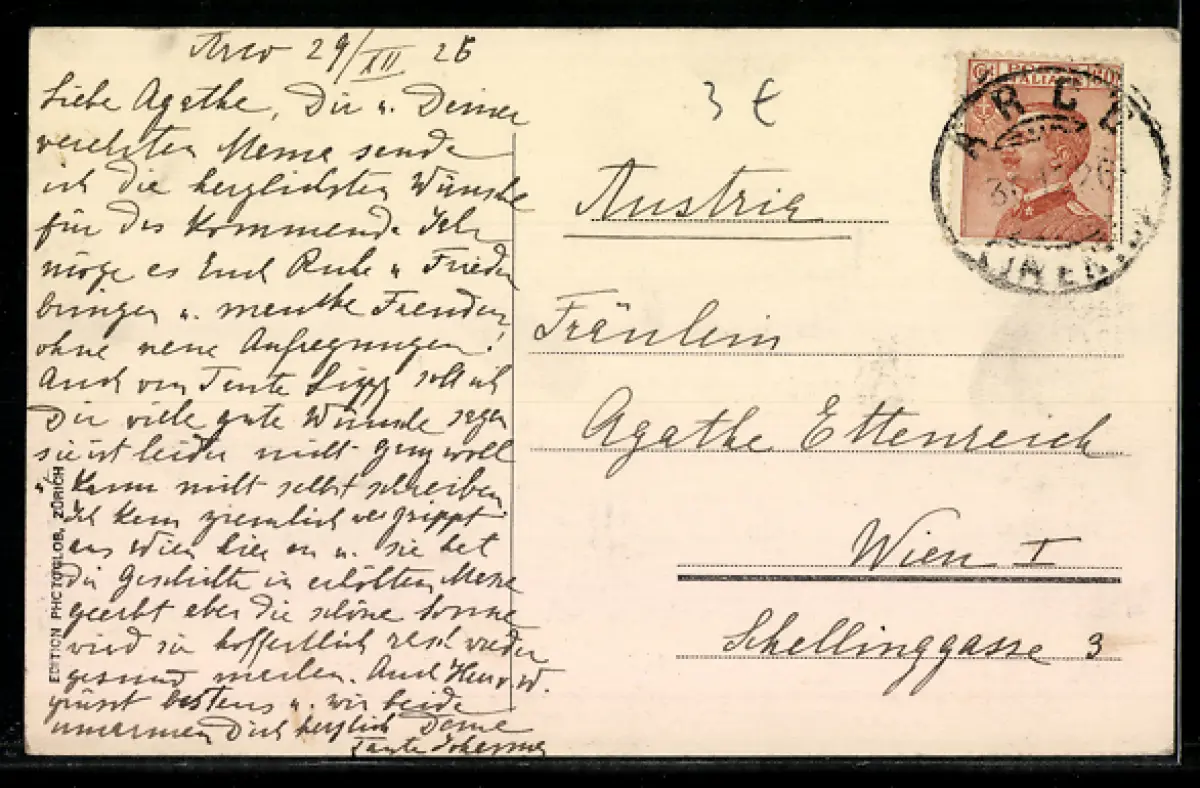 Arco 29/XII 26
Liebe Agathe, Dir u. Deiner
verehrten Meme sende
ich die herzlichsten Wünsche
für das kommende Jahr
möge es Euch Ruhe u Frieden
bringen u. manche Freuden,
ohne neue Aufregungen!
Auch von Tante Lizzy soll ich
Dir viele gute Wünsche sagen
sie ist leider nicht ganz wohl
u kann nicht selbst schreiben
Ich kam ziemlich vergrippt
aus Wien hier an u. sie hat
die Geschichte in erhöhtem Masse
geerbt aber die schöne Sonne
wird sie hoffentlich rasch wieder
gesund machen. Auch Herr W.
grüsst bestens u. wir beide
umarmen Dich herzlich Deine
Tante Johanna
EDITION PHOTOGLOB, ZÜRICH
3 €
ITALIANE
ARCO
Austria
Fräulein
Agathe Ettenreich
Wien I
Schellinggasse 3